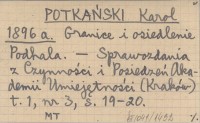 POTKAŃSKI Karol
1896 a. Granice i osiedlenie
Podhala. — Sprawozdania
z Czynności i Posiedzeń Aka-
demii Umiejętności (Kraków)
t. 1, nr 3, s. 19-20.
MT